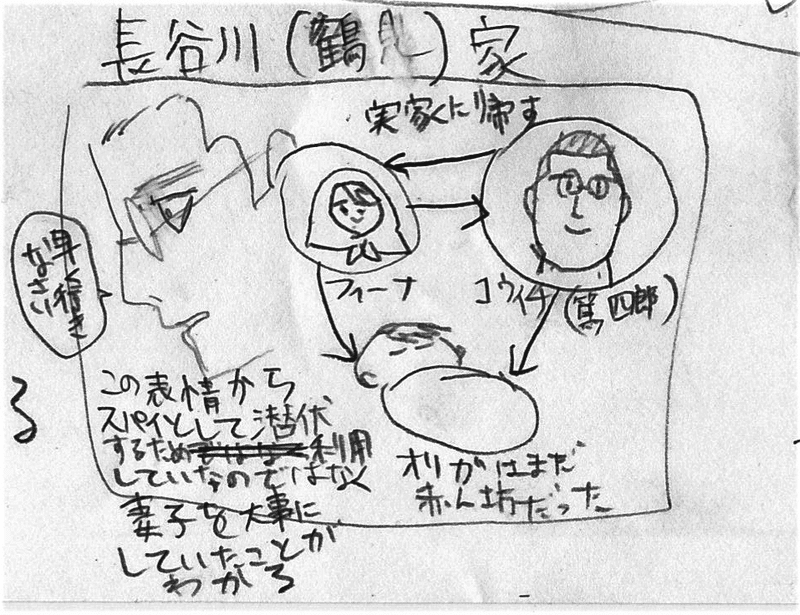 長谷川(鶴見)家
実家に帰す
早く行き
なさい
フィーナ
コウイチ(篤四郎)
この表情から
スパイとして潜伏
するため利用
していたのではなく
妻子を大事に
していたことが
わかる
オリガはまだ
赤ん坊だった
る